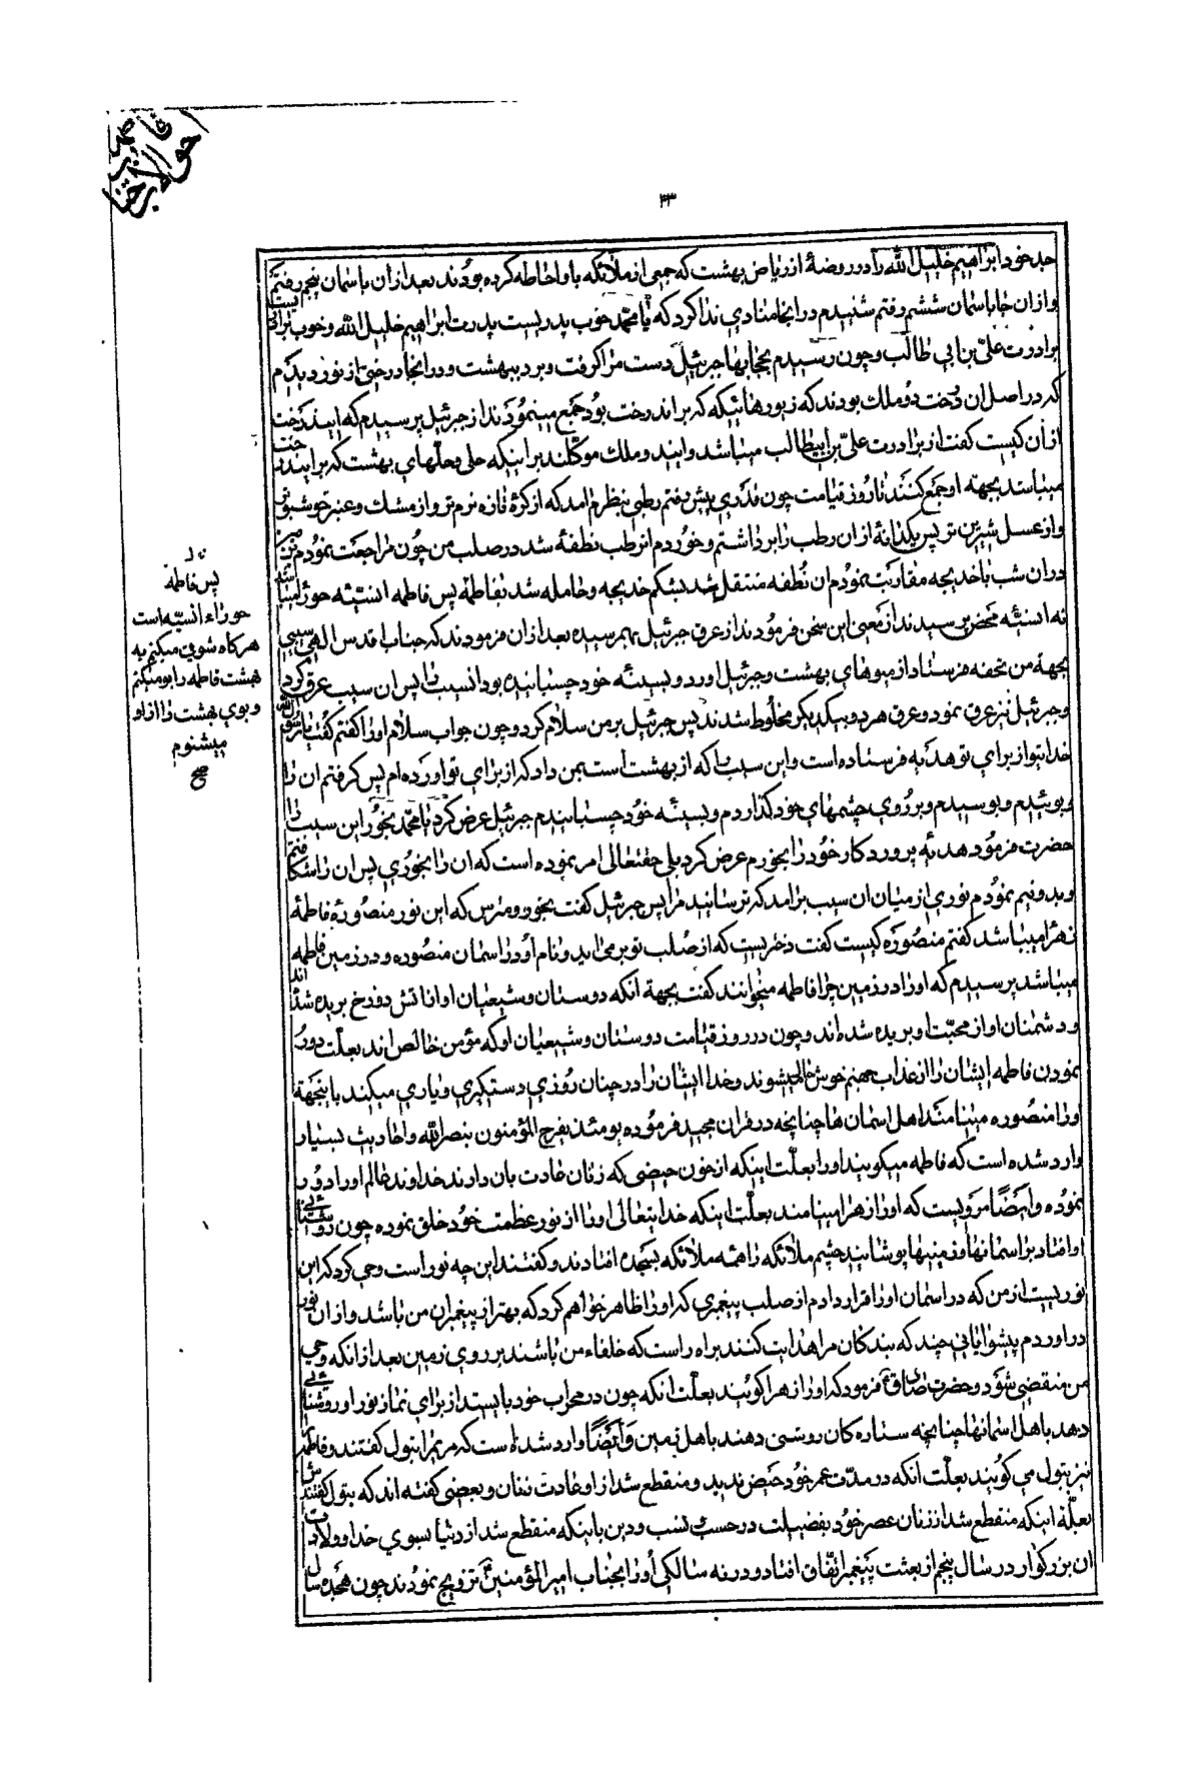 ۳۳
جد خود ابراهیم خلیل الله را در روضهٔ از ریاض بهشت که جمعی از ملائکه باو احاطه کرده بودند بعد از ان باسمان پنجم رفتم
و از ان جا باسمان ششم رفتم شنیدم در انجا منادی ندا کرد که یا محمد خوب پدریست پدرت ابراهیم خلیل الله و خوب برادریست
برادرت علی بن ابی طالب و چون رسیدم بحجابها جبرئیل دست مرا گرفت و برد ببهشت و در انجا درختی از نور دیدم
که در اصل ان درخت دو ملک بودند که زیورهائیکه که بر اندرخت بود جمع مینمودند از جبرئیل پرسیدم که ایندرخت
از ان کیست گفت از برادرت علی بن ابیطالب میباشد و ایندو ملک موکلند بر اینکه حلی و حلهای بهشت که بر ایندرخت
میباشد بجهة او جمع کنند تا روز قیامت چون قدری پیش رفتم رطبی بنظرم امد که از کرهٔ تازه نرم تر و از مشک و عنبر خوشبوتر
و از عسل شیرین تر پس یکدانهٔ از ان رطب را برداشتم و خوردم انرطب نطفهٔ شد در صلب من چون مراجعت نمودم
دران شب با خدیجه مقاربت نمودم ان نطفه منتقل شد بشکم خدیجه و حامله شد بفاطمة پس فاطمه انسیّه حورا میباشد
نه انسیّهٔ محض پرسیدند از معنی این سخن فرمودند از عرق جبرئیل بهم رسیده بعد از ان فرمودند که جناب اقدس الهی سیبی
بجهة من تحفه فرستاد از میوهای بهشت و جبرئیل اورد و بسینهٔ خود چسبانیده بود انسیب را پس ان سیب عرق کرد
و جبرئیل نیز عرق نمود و عرق هر دو بیکدیگر مخلوط شدند پس جبرئیل بر من سلام کرد و چون جواب سلام او را گفتم گفت یا رسول الله
خدا بتو از برای تو هدیه فرستاده است و این سیب را که از بهشت است بمن داد که از برای تو اورده ام پس گرفتم ان را
و بوئیدم و بوسیدم و بر روی چشمهای خود گذاردم و بسینهٔ خود چسبانیدم جبرئیل عرض کرد یا محمد بخور این سیب را
حضرت فرمود هدیهٔ پروردکار خود را بخورم عرض کرد بلی حقتعالی امر نموده است که ان را بخوری پس ان را شکافتم
و بدو نیم نمودم نوری از میان ان سیب برامد که ترسانید مرا پس جبرئیل گفت بخور و مترس که این نور منصورهٔ فاطمهٔ
زهرا میباشد گفتم منصوره کیست گفت دختریست که از صلب تو بر می اید و نام او در اسمان منصوره و در زمین فاطمه
میباشد پرسیدم که او را در زمین چرا فاطمه میخوانند گفت بجهة انکه دوستان و شیعیان او از اتش دوزخ بریده شده اند
و دشمنان او از محبّت او بریده شده اند و چون در روز قیامت دوستان و شیعیان او که مؤمن خالص اند بعلّت دور
نمودن فاطمه ایشان را از عذاب جهنم خوش حال میشوند و خدا ایشان را در چنان روزی دستگیری و یاری میکند باینجهة
او را منصوره مینامند اهل اسمان ها چنانچه در قران مجید فرموده یومئذ یفرح المؤمنون بنصر الله و احادیث بسیار
وارد شده است که فاطمه میگویند او را بعلّت اینکه از خون حیضی که زنان عادت بان دارند خداوند عالم او را دور
نموده و ایضًا مرویست که او را زهرا مینامند بعلّت اینکه خدایتعالی او را از نور عظمت خود خلق نموده چون روشنائی
او افتاد بر اسمانها و زمینها پوشانید چشم ملائکه را همه ملائکه بسجده افتادند و گفتند این چه نور است وحی کرد که این
نوریست از من که در اسمان او را قرار دادم از صلب پیغمبری که او را ظاهر خواهم کرد که بهتر از پیغمبران من باشد و از ان نور
در اوردم پیشوایانی چند که بندکان مرا هدایت کنند براه راست که خلفاء من باشند بر روی زمین بعد از انکه وحی
من منقضی شود و حضرت صادق فرمود که او را زهرا گویند بعلّت انکه چون در محراب خود بایستد از برای نماز نور او روشنائی
دهد باهل اسمانها چنانچه ستاره کان روشنی دهند باهل زمین و ایضًا وارد شده است که مریم را بتول گفتند و فاطمه
نیز بتول می گویند بعلّت انکه در مدّت عمر خود حیض ندید و منقطع شد از او عادت زنان و بعضی گفته اند که بتول گفتندش
بعلّة اینکه منقطع شد از زنان عصر خود بفضیلت در حسب و نسب و دین یا اینکه منقطع شد از دنیا بسوی خدا و ولادت
ان بزرگوار در سال پنجم از بعثت پیغمبر اتّفاق افتاد و در نه سالگی او را بجناب امیرالمؤمنین تزویج نمودند چون هجده سال
پس فاطمة
حوراء انسیّه است
هرکاه شوق میکنم به
بهشت فاطمه را بو میکنم
و بوی بهشت را از او
میشنوم